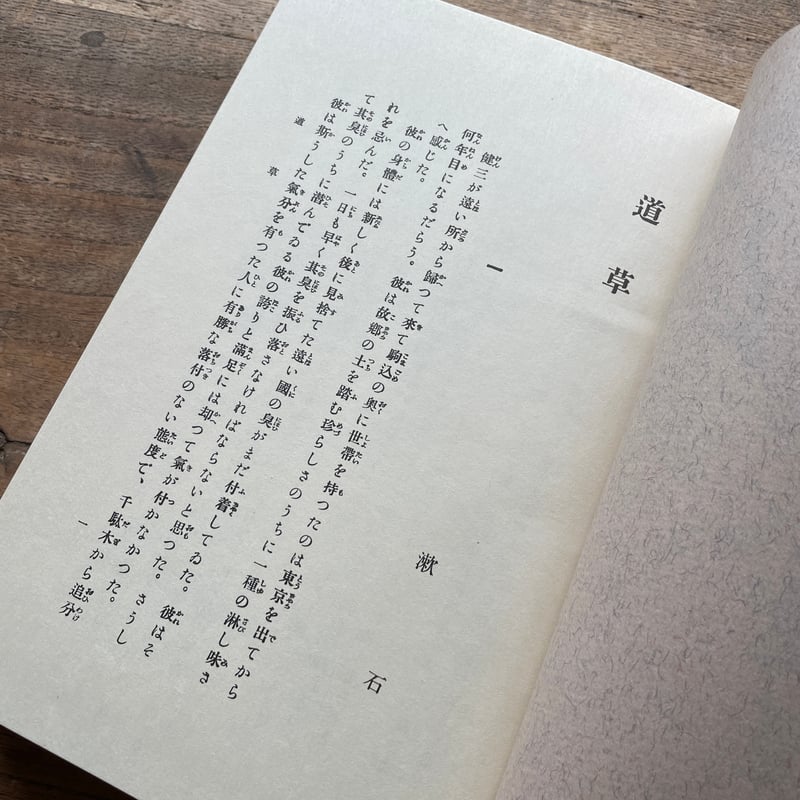 道草
漱石
一
健三が遠い所から歸つて來て駒込の奥に世帶を持つたのは東京を出てから
何年目になるだらう。彼は故郷の土を踏む珍らしさのうちに一種の淋し味さ
へ感じた。
彼の身體には新しく後に見捨てた遠い國の臭がまだ付着してゐた。彼はそ
れを忌んだ。一日も早く其臭を振ひ落さなければならないと思つた。さうし
て其臭のうちに潜んでゐる彼の誇りと滿足には却つて氣が付かなかつた。
彼は斯うした氣分を有つた人に有勝な落付のない態度で、千駄木から追分
道草
一